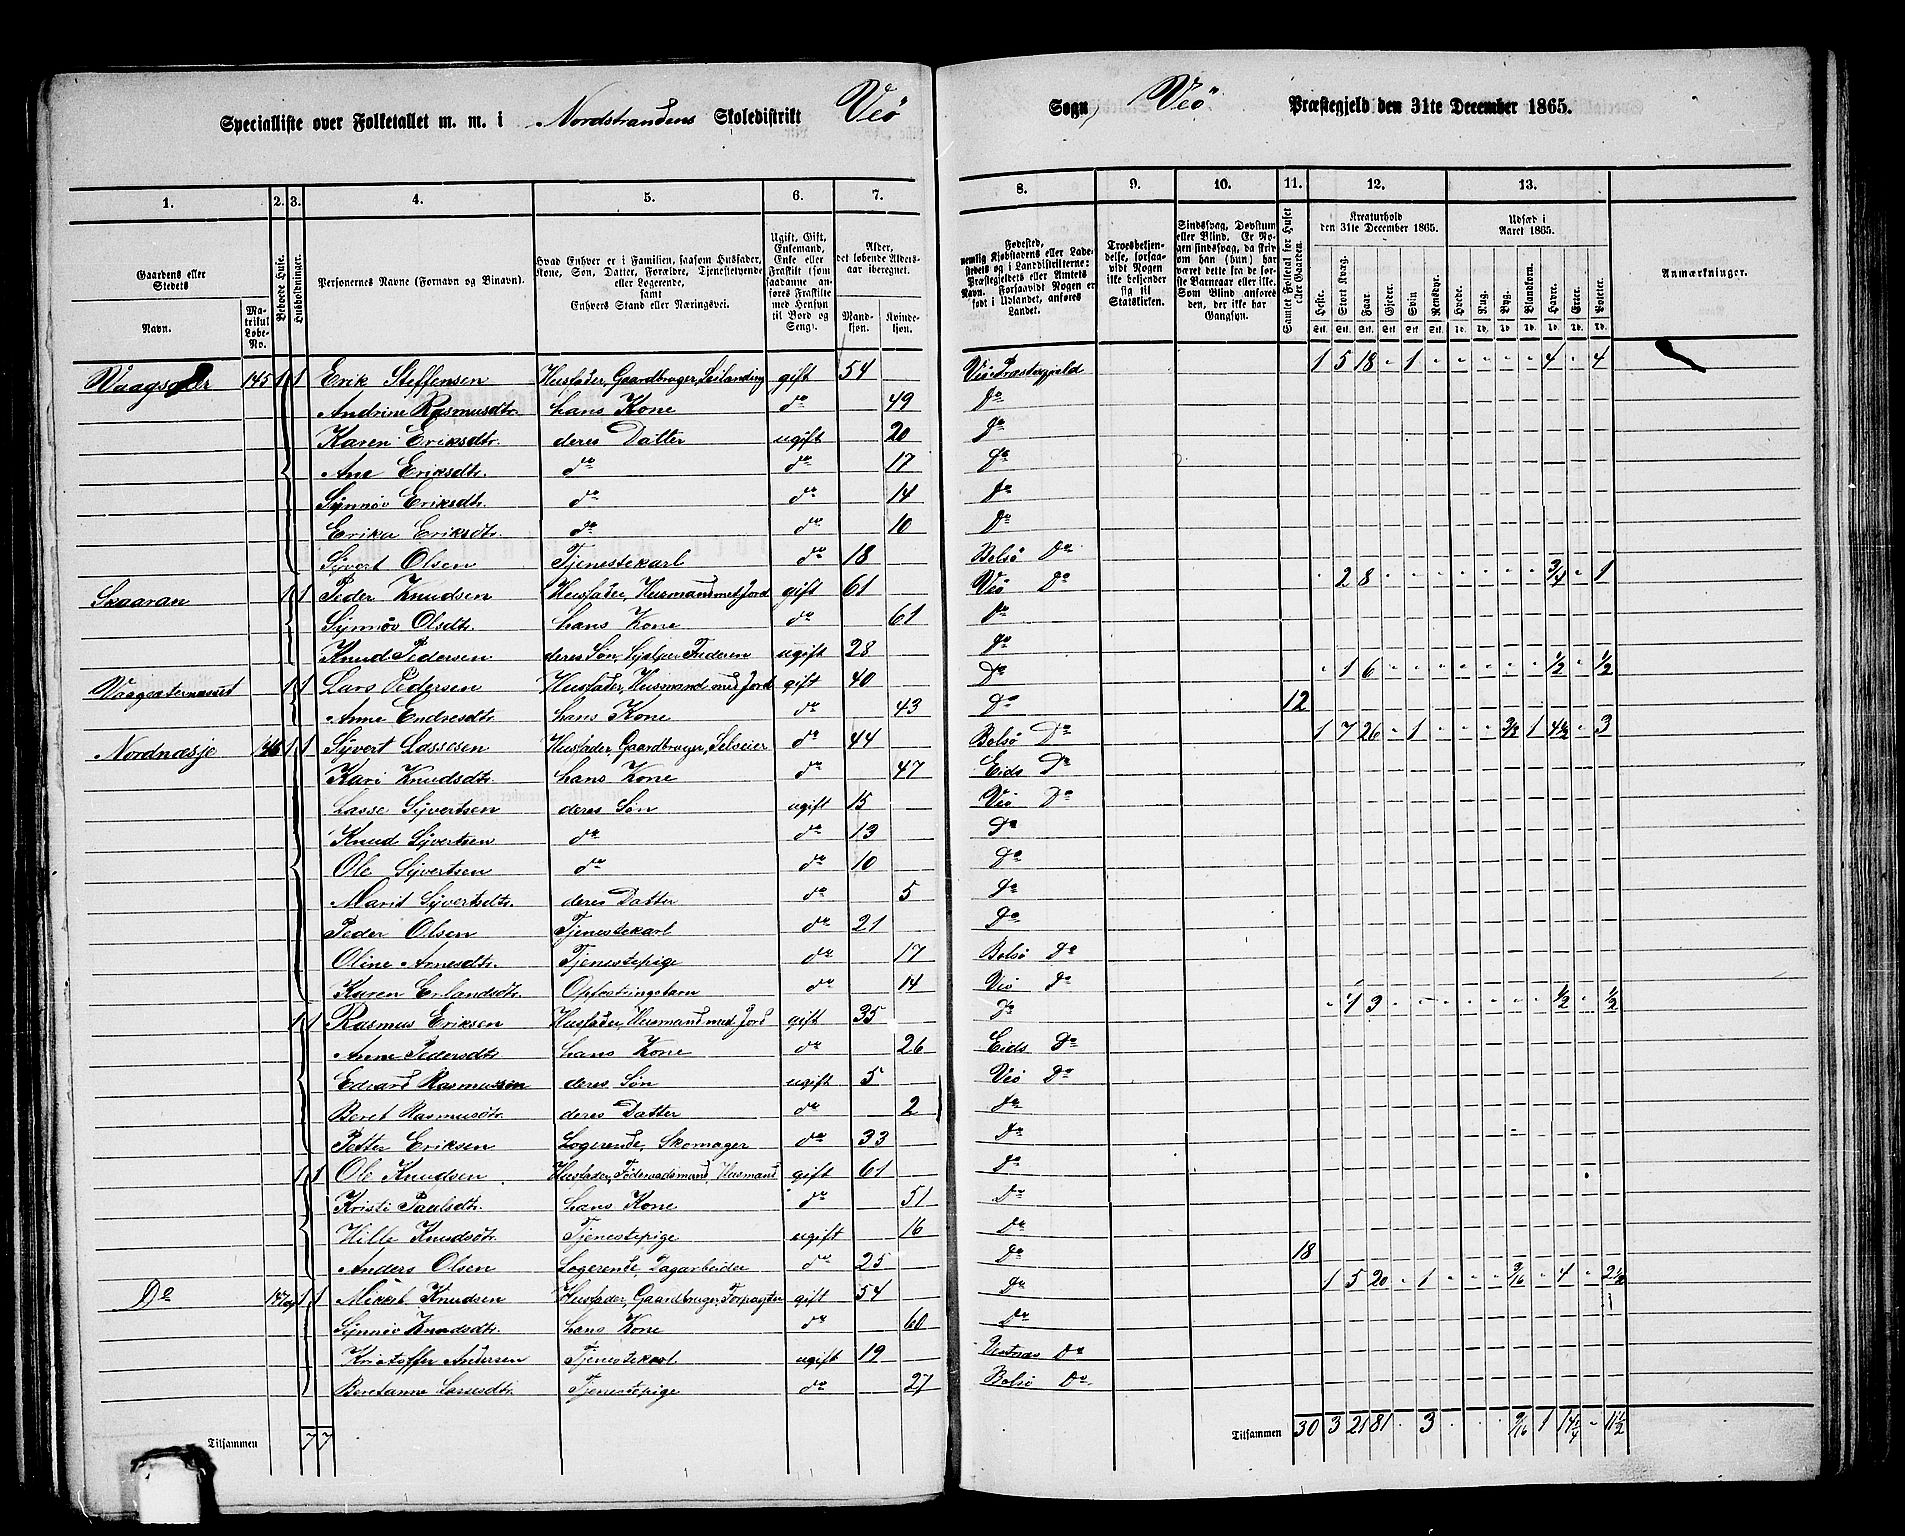 Specialliste over Folketallet m. m. i Nordstrandens Skoledistrikt Veö Sogn, Veö Præstegjeld den 31te December 1865.
1. 2. 3. 4. 5. 6. 7. 8. 9. 10. 11. 12. 13.
Gaardens eller Stedets Navn. Matrikul Løbe-No.
Beboede Huse.
Husholdninger.
Personernes Navne (Fornavn og Binavn).
Hvad Enhver er i Familien, saasom Husfader, Kone, Søn, Datter, Forældre, Tjenestetyende eller Logerende, samt Enhvers Stand eller Næringsvei.
Ugift, Gift, Enkemand, Enke eller Fraskilt (som saadanne anføres Fraskilte med Hensyn til Bord og Seng).
Alder, det løbende Aldersaar iberegnet. Mandkjøn. Kvindekjøn.
Fødested, nemlig Kjøbstadens eller Ladestedets og i Landdistrikterne: Præstegjeldets eller Amtets Navn. Forsaavidt Nogen er født i Udlandet, anføres Landet.
Troesbekjendelse, forsaavidt Nogen ikke bekjender sig til Statskirken.
Sindssvag, Døvstum eller Blind. Er Nogen sindssvag, da skrives om han (hun) har været dette fra de første Barneaar eller ikke. Som Blind anføres den, der ikke har Gangsyn.
Samlet Folketal for Huset eller Gaarden.
Kreaturhold den 31te December 1865. Heste. Stort Kvæg. Faar. Gjeder. Svin. Rensdyr.
Udsæd i Aaret 1865. Hvede. Rug. Byg. Blandkorn. Havre. Erter. Poteter.
Anmærkninger.
145 1 1 Erik Steffensen Husfader, Gaardbruger, Leilænding gift 54 Veö Præstegjeld 1 5 18 - 1 - - - - - 4 - 4
Andrine Rasmusdtr. hans Kone do 49 Do
Karen Eriksdtr. deres Datter ugift 20 Do
Ane Eriksdtr. do do 17 Do
Synnöv Eriksdtr. do do 14 Do
Erika Eriksdtr. do do 10 Do
Syvert Olsen Tjenestekarl do 18 Bolsö Do
Skaaran 1 1 Peder Knudsen Husfader, Husmand med Jord gift 61 Veö Do - 2 8 - - - - - - - 3/4 - 1
Synnöv Olsdtr. hans Kone do 61 Do
Knud Pedersen deres Søn, hjelper Faderen ugift 28 Do
1 1 Lars Pedersen Husfader, Husmand med Jord gift 40 Do - 1 6 - - - - - - - 1/2 - 1/2
Anne Endresdtr. hans Kone do 43 Do 12
Nordnæsje 146 1 1 Syvert Lassesen Husfader, Gaardbruger, Selveier do 44 Bolsö Do 1 7 26 - 1 - - - 1 4 1/2 - 3
Kari Knudsdtr. hans Kone do 47 Eids Do
Lasse Syvertsen deres Søn ugift 15 Veö Do
Knud Syvertsen do do 13 Do
Ole Syvertsen do do 10 Do
Marit Syvertsdtr. deres Datter do 5 Do
Peder Olsen Tjenestekarl do 21 Do
Oline Arnesdtr. Tjenestepige do 17 Bolsö Do
Karen Erlandsdtr. Opfostringsbarn do 14 Veö Do
1 1 Rasmus Eriksen Husfader, Husmand med Jord gift 35 Do 3 - - - - - - - 1/2 - 1/2
Anne Pedersdtr. hans Kone do 26 Eids Do
Edvard Rasmussen deres Søn ugift 5 Veö Do
Beret Rasmusdtr. deres Datter do 2 Do
Petter Eriksen Logerende, Skomager do 33 Do
1 1 Ole Knudsen Husfader, Føderaadsmand, Husmand gift 61 Do
Kristi Paulsdtr. hans Kone do 51 Do
Hille Knudsdtr. Tjenestepige ugift 16 Do
Anders Olsen Logerende, Dagarbeider do 25 Do 18
Do 1 1 Mikkel Knudsen Husfader, Gaardbruger, Forpagter gift 54 Do 1 5 20 - 1 - - - 3/16 - 4 - 2 1/2
Synnöv Knudsdtr. hans Kone do 60 Do
Kristoffer Andersen Tjenestekarl ugift 19 Vestnæs Do
Beretanne Lassesdtr. Tjenestepige do 27 Bolsö Do
Tilsammen 7 7 Tilsammen 30 3 21 81 - 3 - - - 9/16 1 14 1/4 - 11 1/2